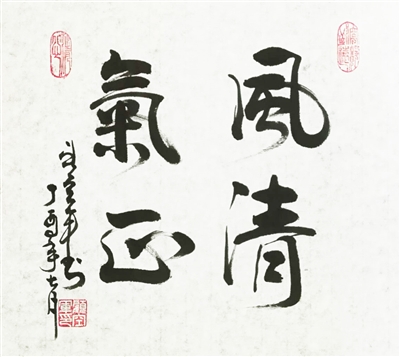 風清
氣正
丁酉年七月